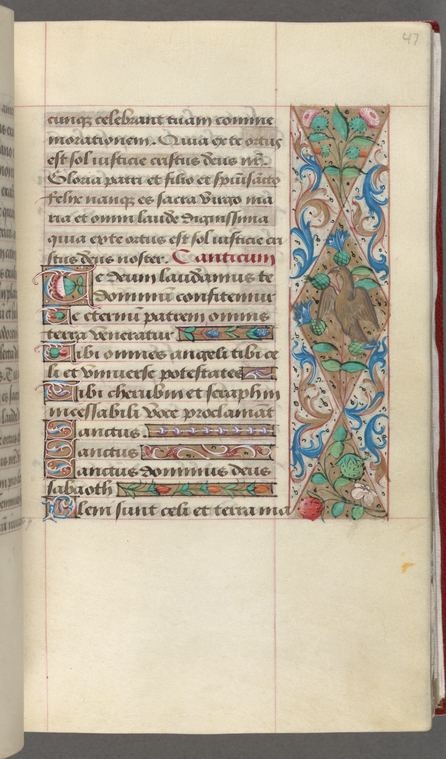 47
cunq̃ celebrant tuam comme
morationem. Quia ex te ortus
est sol iusticie cristus deus nr̃.
Gloria patri et filio et spũisãcto
felix nanque es sacra virgo ma
ria et omni laude dignissima
quia ex te ortus est sol iusticie cri
stus deus noster. Canticum
Te deum laudamus te
dominũ confitemur
Te eternũ patrem omnis
terra veneratur
Tibi omnes angeli tibi ce
li et vniuerse potestates
Tibi cherubin et seraphin
incessabili voce proclamãt
Sanctus
Sanctus
Sanctus dominus deus
sabaoth
Pleni sunt celi et terra ma